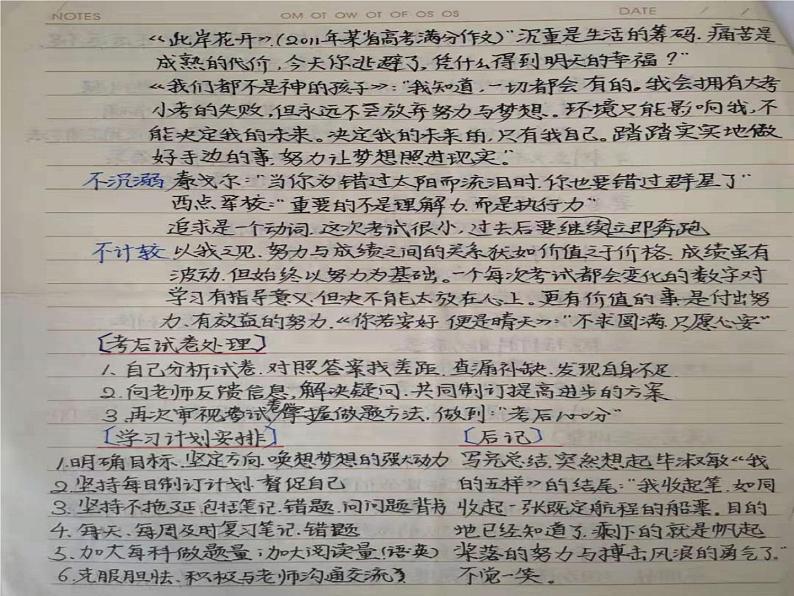 NOTES OM OT OW OT OF OS OS DATE / /
《此岸花开》(2011年某省高考满分作文)"沉重是生活的筹码.痛苦是
成熟的代价,今天你逃避了,凭什么得到明天的幸福?"
《我们都不是神的孩子》:"我知道,一切都会有的。我会拥有大考
小考的失败,但永远不会放弃努力与梦想。环境只能影响我,不
能决定我的未来。决定我的未来的,只有我自己。踏踏实实地做
好手边的事.努力让梦想照进现实。"
不沉溺 泰戈尔:"当你为错过太阳而流泪时.你也要错过群星了"
西点军校:"重要的不是理解力,而是执行力"
追求是一个动词.这次考试很小,过去后要继续立即奔跑
不计较 以我之见.努力与成绩之间的关系犹如价值之于价格.成绩虽有
波动.但始终以努力为基础。一个每次考试都会变化的数字对
学习有指导意义.但决不能太放在心上。更有价值的事是付出努
力.有效益的努力.《你若安好 便是晴天》:"不求圆满.只愿心安"
[考后试卷处理]
1.自己分析试卷.对照答案找差距.查漏补缺.发现自身不足.
2.向老师反馈信息,解决疑问.共同制订提高进步的方案
3.再次审视考试卷.掌握做题方法.做到:"考后100分"
[学习计划安排] [后记]
1.明确目标.坚定方向.唤想梦想的强大动力 写完总结.突然想起毕淑敏《我
2.坚持每日制订计划.督促自己 的五样》的结尾:"我收起笔.如同
3.坚持不拖延.包括笔记.错题.问问题.背书 收起一张既定航程的船票。目的
4.每天、每周及时复习笔记.错题 地已经知道了.剩下的就是帆起
5.加大每科做题量;加大阅读量(语英) 桨落的努力与搏击风浪的勇气了。"
6.克服胆怯.积极与老师沟通交流 不觉一笑。